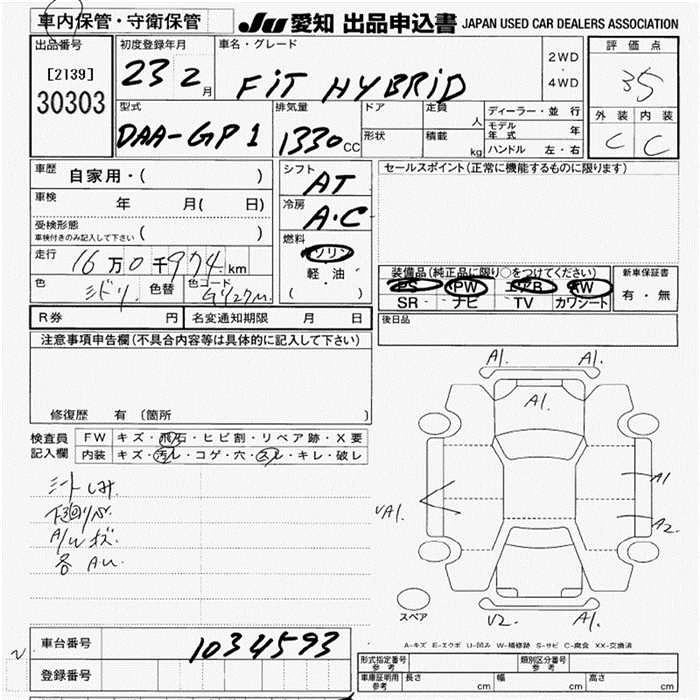 車内保管・守衛保管
JU 愛知 出品申込書 JAPAN USED CAR DEALERS ASSOCIATION
出品番号
[2139]
30303
初度登録年月
23 2 月
車名・グレード
FIT HYBRID
2WD
・
4WD
評価点
35
外装 内装
C C
型式
DAA-GP1
排気量
1330 CC
ドア
形状
定員
人
積載
kg
ディーラー・並行
モデル年式 年
ハンドル 左・右
車歴
自家用・( )
車検
年 月( 日)
受検形態
車検付きのみ記入して下さい ( )
走行
16万0千974km
色
ミドリ
色替
色コード
シフト
AT
冷房
A・C
燃料
ガソリン
軽・油
( )
セールスポイント(正常に機能するものに限ります)
装備品(純正品に限り○をつけてください)
PS PW エアB AW
SR ナビ TV カワシート
新車保証書
有・無
後日品
R券 円
名変通知期限 月 日
注意事項申告欄(不具合内容等は具体的に記入して下さい)
修復歴 有 〔箇所 〕
検査員
記入欄
FW キズ・飛石・ヒビ割・リペア跡・X要
内装 キズ・汚レ・コゲ・穴・スレ・キレ・破レ
シートしみ.
下廻りサビ
A/W キズ.
各 AU.
A1. A1.
A1.
UA1.
A1
A2.
スペア
U2. A1.
A-キズ E-エクボ U-凹み W-補修跡 S-サビ C-腐食 XX-交換済
車台番号
1034593
登録番号
形式指定番号参考
類別区分番号参考
車庫証明用参考
長さ cm 幅 cm 高さ cm